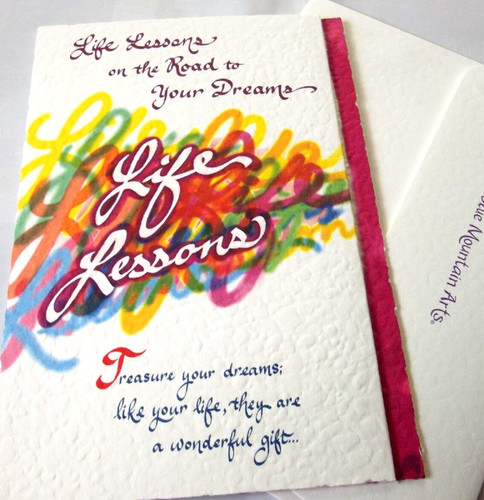 Life Lessons
on the Road to
Your Dreams
Life
Lessons
Treasure your dreams;
like your life, they are
a wonderful gift...
Mountain Arts®